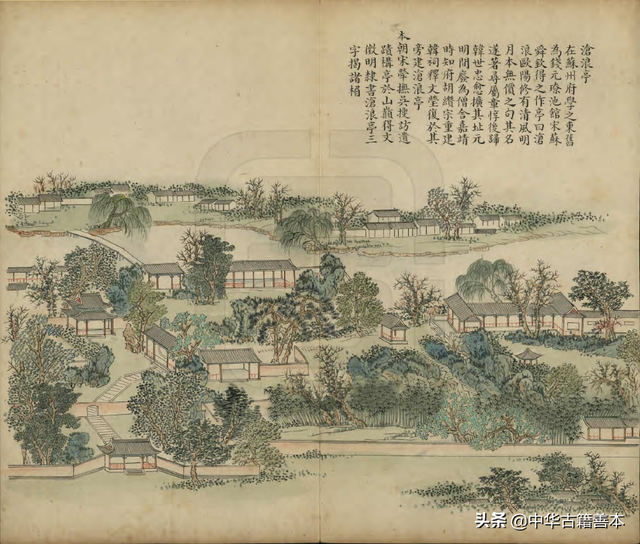 滄浪亭
在蘇州府學之東舊
為錢元璙池館宋蘇
舜欽得之作亭曰滄
浪歐陽修有清風明
月本無價之句其名
遂著尋屬章惇後歸
韓世忠愈擴其址元
明間廢為僧舍嘉靖
時知府胡纘宗重建
韓祠釋文瑩復於其
旁建滄浪亭
本朝宋犖撫吳搜訪遺
蹟構亭於山巔得文
徵明隸書滄浪亭三
字揭諸楣
头条 @中华古籍善本